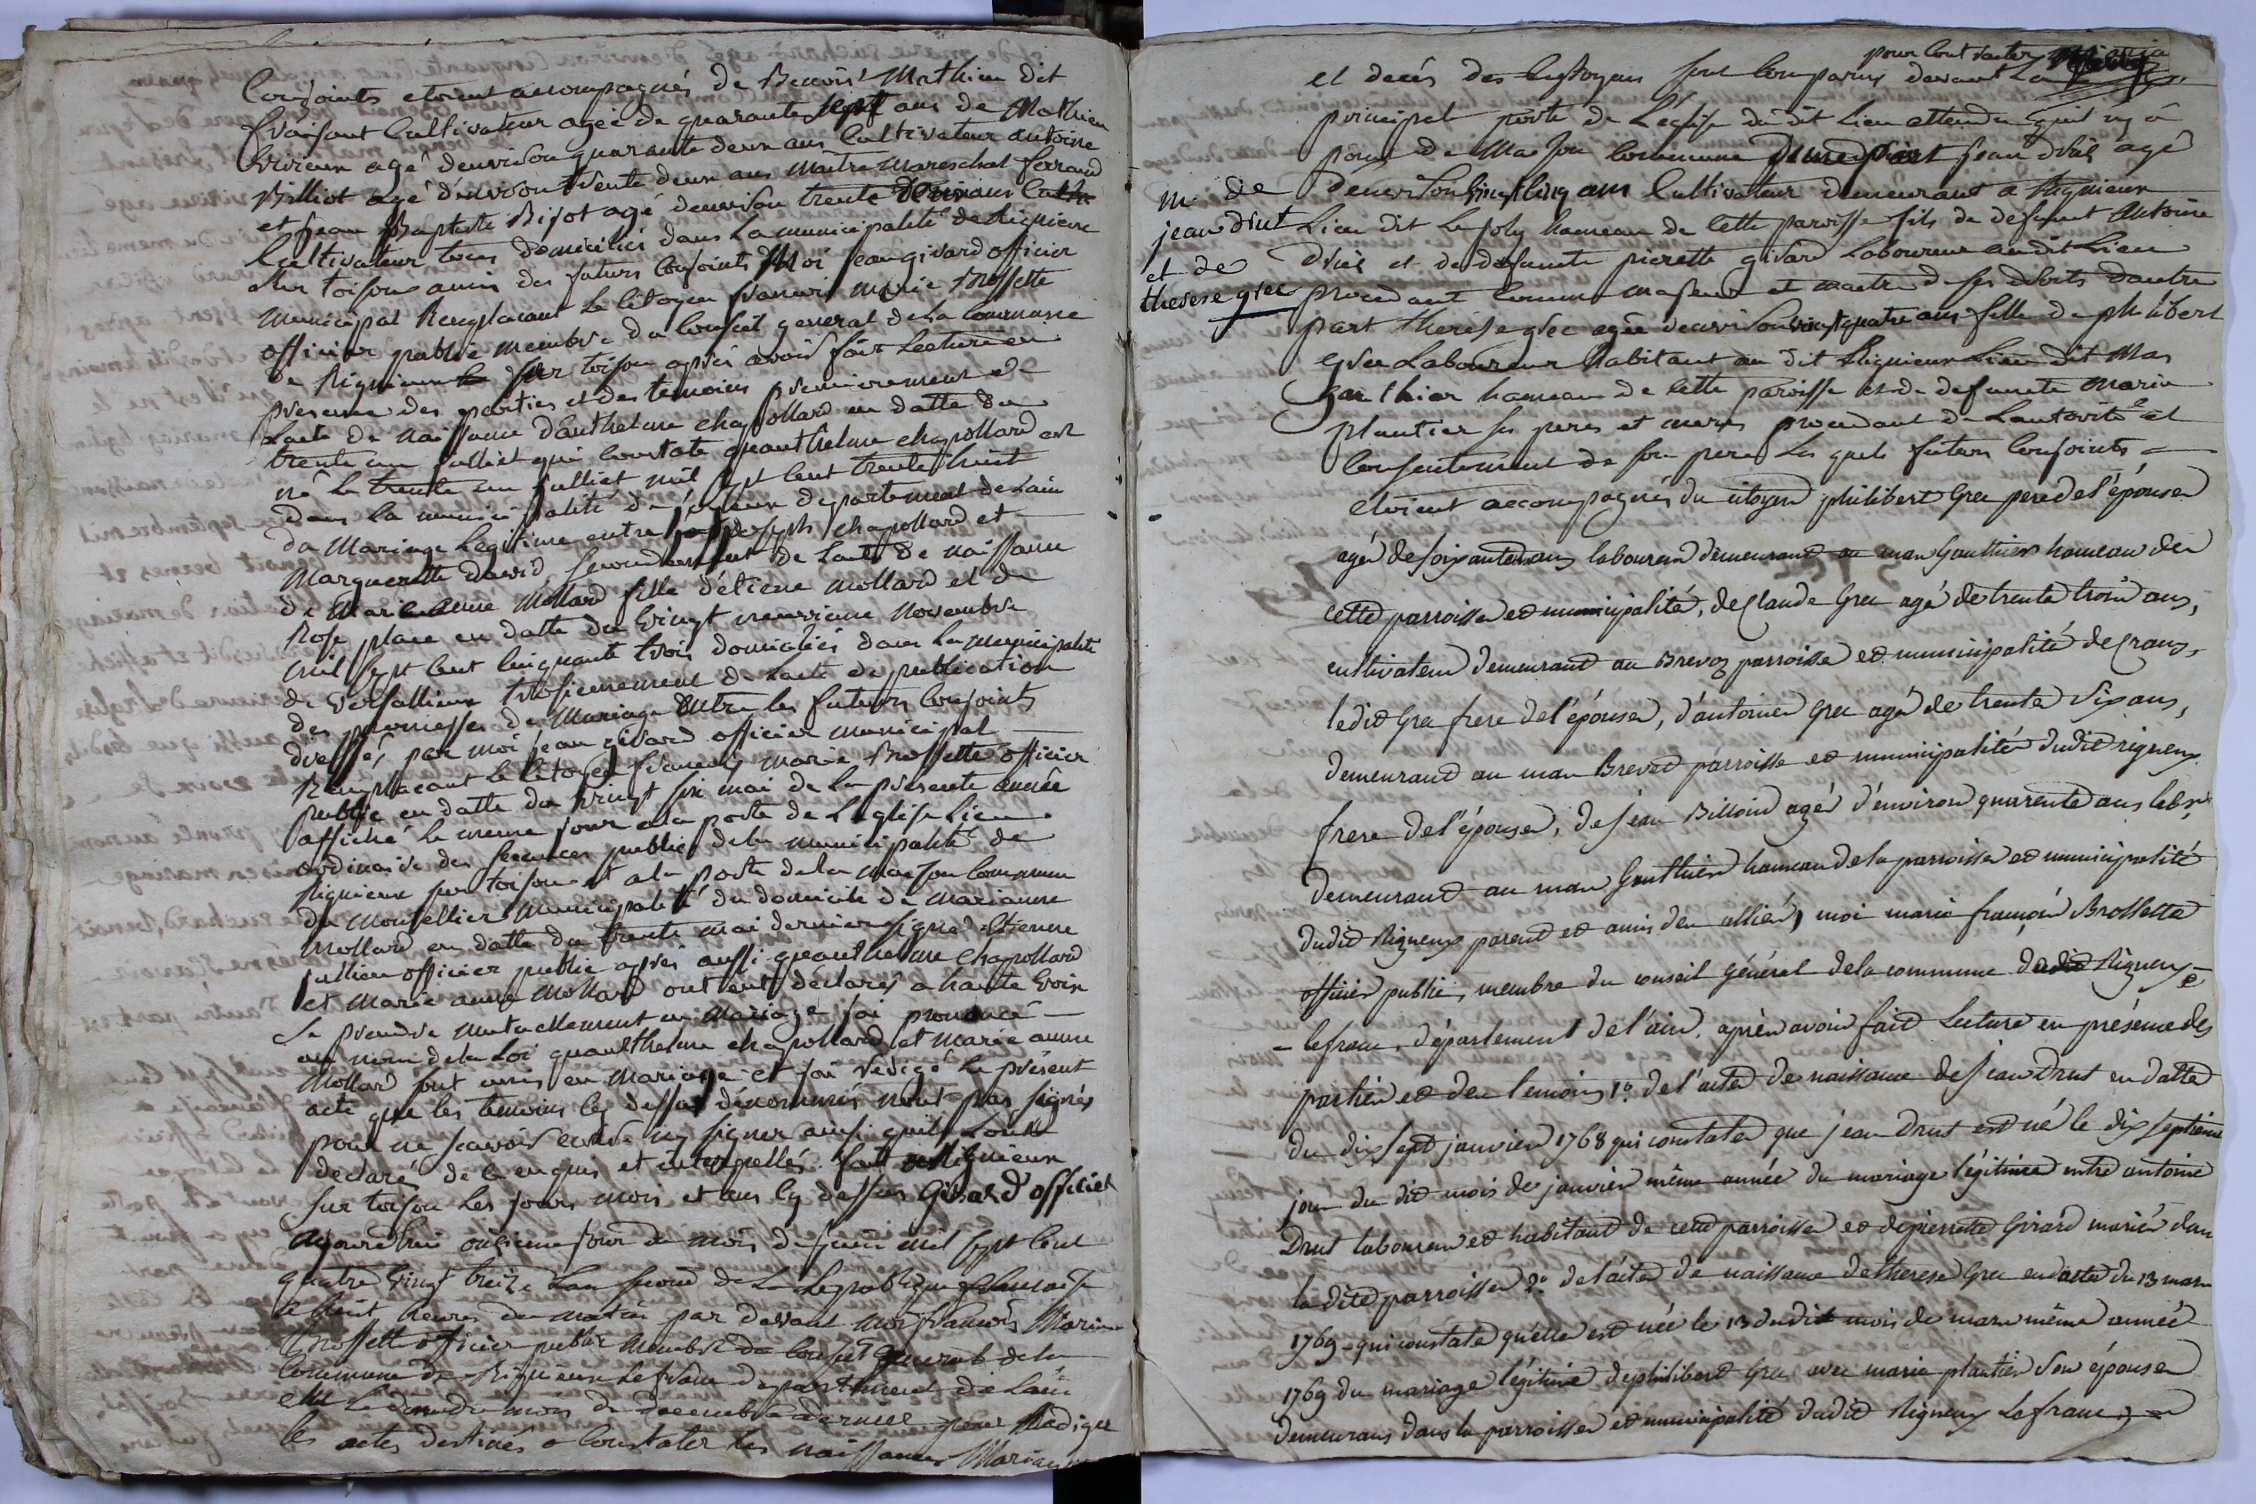 Conjoints etoient accompagnés de Benoist Mathieu dit
fraisant Cultivateur agée de quarante sept ans de Mathieu
Vivieux agé denvison quarante deux ans Cultivateur antoine
Billiot agé d'envison trente deux ans maitre mareschal ferrand
et jean Baptiste Bizot agé denvison trente deux ans
Cultivateur tous domicilies dans La municipalité de Rignieux
sur toison amis des futurs Conjoints Moi jean givard officier
municipal Remplacant Le Citoyen francois marie Brossette
officier public membre du Conseil general de La Commune
de Rignieux sur toison après avoir fait Lecture en
presence des parties et des temoins premierement de
Lacte de naissance dAnthelme chapollard en datte du
trente un julliet qui Constate quanthelme chapollard est
né Le trente un julliet mil sept Cent trente huit
dans La municipalité de joyeux departement de Lain
du Mariage Legitime entre joseph chapollard et
Marguerite david, Secondement de Lacte de naissance
de Marianne Mollard fille d'étiene mollard et de
Rose place en datte du vingt neuvieme Novembre
mil sept Cent Cinquante trois domiciliés dans La municipalité
de versallieux troisiemement de Lacte de publication
des promesses de Mariage Entre les futurs Conjoints
dressé, par moi jean givard officier municipal
Remplacant Le Citoyen francois marie Brossette officier
public en datte du vingt six mai de La presente année
affiché Le meme jour a La porte de Leglise Lieu
ordinaire des seances public dela municipalité de
Rignieux sur toison et a La porte dela maison Commune
du Montellier municipalité du domicile de Marianne
Mollard en datte du trente mai dernier signé Etienne
jullien officier public après aussi quanthelme Chapollard
et Marie anne Mollard ont eut déclarés a haute voix
Se prendre mutuellement en Mariage jai prononcé
au nom dela Loi quanthelme chapollard et Marie anne
Mollard sont unis en mariage et jai redigé Le présent
acte que les temoins cy dessus dénommés nont pas signés
pour ne scavoir ecrire ny signer ainsi quils L'ont
declaré de ce enquis et interpellés fait a Rignieux
sur toison Les jours mois et ans cy dessus Givard officier
Aujourdhui onzieme jour du mois de juin mil sept Cent
quatre vingt treize Lan second de La Republique francaise
a huit heures du matin par devant moi francois Marie
Brossette officier public membre du Conseil general de la
Commune de Rignieux Lefranc departement de Lain
élu Le mois de decembre dernier pour Rediger
les actes destinés a Constater les naissances Mariages
pour Contracter Mariage
et decés des Cytoyens sont Comparus devant La
principal porte de L'église du dit Lieu attendu quil ny a
point de Maison Commune jean drut agé
m. de
jean drut
et de
therese grec
d'envison vingt cinq ans Cultivateur demeurant a Rignieux
Lieu dit Le joly hameau de Cette paroisse fils de defunt Antoine
drut et de defuncte pierrette givard Laboureur audit Lieu
procedant Comme majeur et maitre de ses droits d'autre
part therése grec agée denvison vingt quatre ans fille de philibert
grec Laboureur habitant au dit Rignieux Lieu dit Mas
Gauthier hameau de Cette paroisse et de defuncte Marie
plantier ses peres et meres procedant de Lautorité et
Consentement de son pere Les quels futurs Conjoints
etoient accompagnés du citoyen philibert Grec pere de l'épouse
agé de soixante ans laboureur demeurant au mas Gauthier hameau de
cette parroisse et municipalité, de Claude Grec agé de trente trois ans,
cultivateur demeurant au Brevoz parroisse et municipalité de Crans,
ledit Grec frere de l'épouse, d'antoine Grec agé de trente six ans,
demeurant au mas Brevet parroisse et municipalité dudit rigneux
frere de l'épouse, de jean Billoud agé d'environ quarente ans labr
demeurant au mas Gauthier hameau de la parroisse et municipalité
dudit Rigneux parent et amis des alliés, moi marie françois Brossette
officier public, membre du conseil général dela commune dudit Rigneux
lefranc, département de l'ain, après avoir fait Lecture en présence des
parties et des temoins, 1°. de l'acte de naissance de jean Drut en datte
du dix sept janvier 1768 qui constate que jean Drut est né le dix septieme
jour du dit mois de janvier même année du mariage légitime entre antoine
Drut laboureur et habitant de cette parroisse et de pierrette Girard mariés dans
la dite parroisse 2°. de l'acte de naissance de therese Grec en datte du 13 mars
1769 qui constate qu'elle est née le 13 dudit mois de mars même année
1769 du mariage légitime de philibert Grec avec marie plantier son épouse
demeurans dans la parroisse et municipalité dudit Rigneux Lefranc,